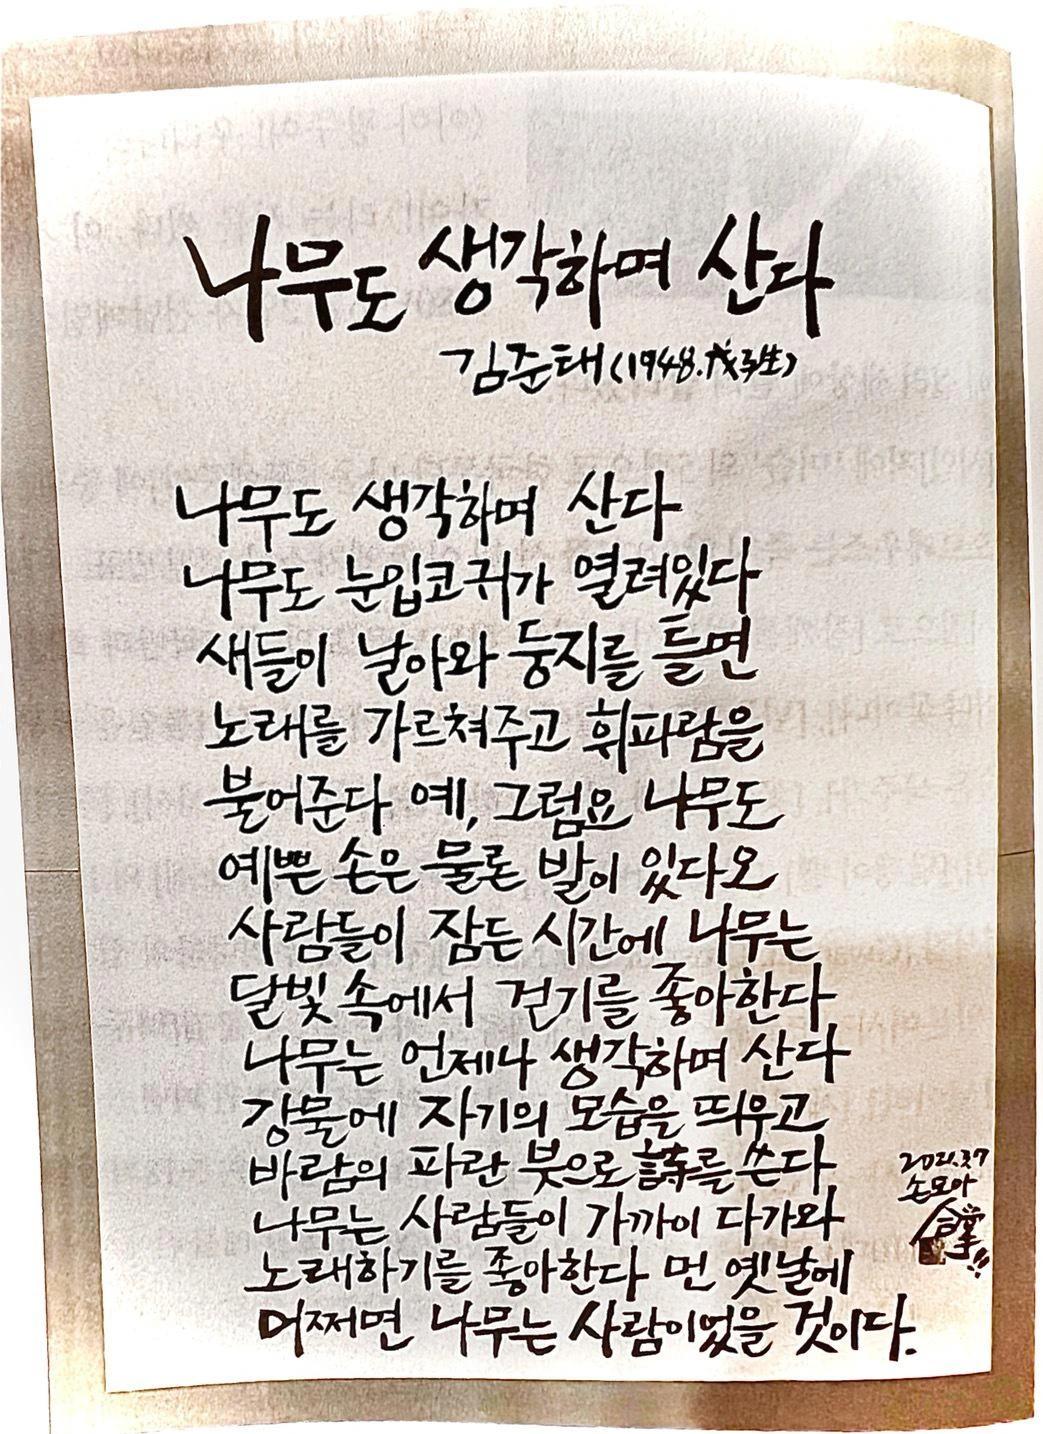 나무도 생각하며 산다
김준태(1948.戊子生)
나무도 생각하며 산다
나무도 눈입코귀가 열려있다
새들이 날아와 둥지를 틀면
노래를 가르쳐주고 휘파람을
불어준다 예, 그럼요 나무도
예쁜 손은 물론 발이 있다오
사람들이 잠든 시간에 나무는
달빛 속에서 걷기를 좋아한다
나무는 언제나 생각하며 산다
강물에 자기의 모습을 띄우고
바람의 파란 붓으로 詩를 쓴다
나무는 사람들이 가까이 다가와
노래하기를 좋아한다 먼 옛날에
어쩌면 나무는 사람이었을 것이다.
2021.3.7
손모아